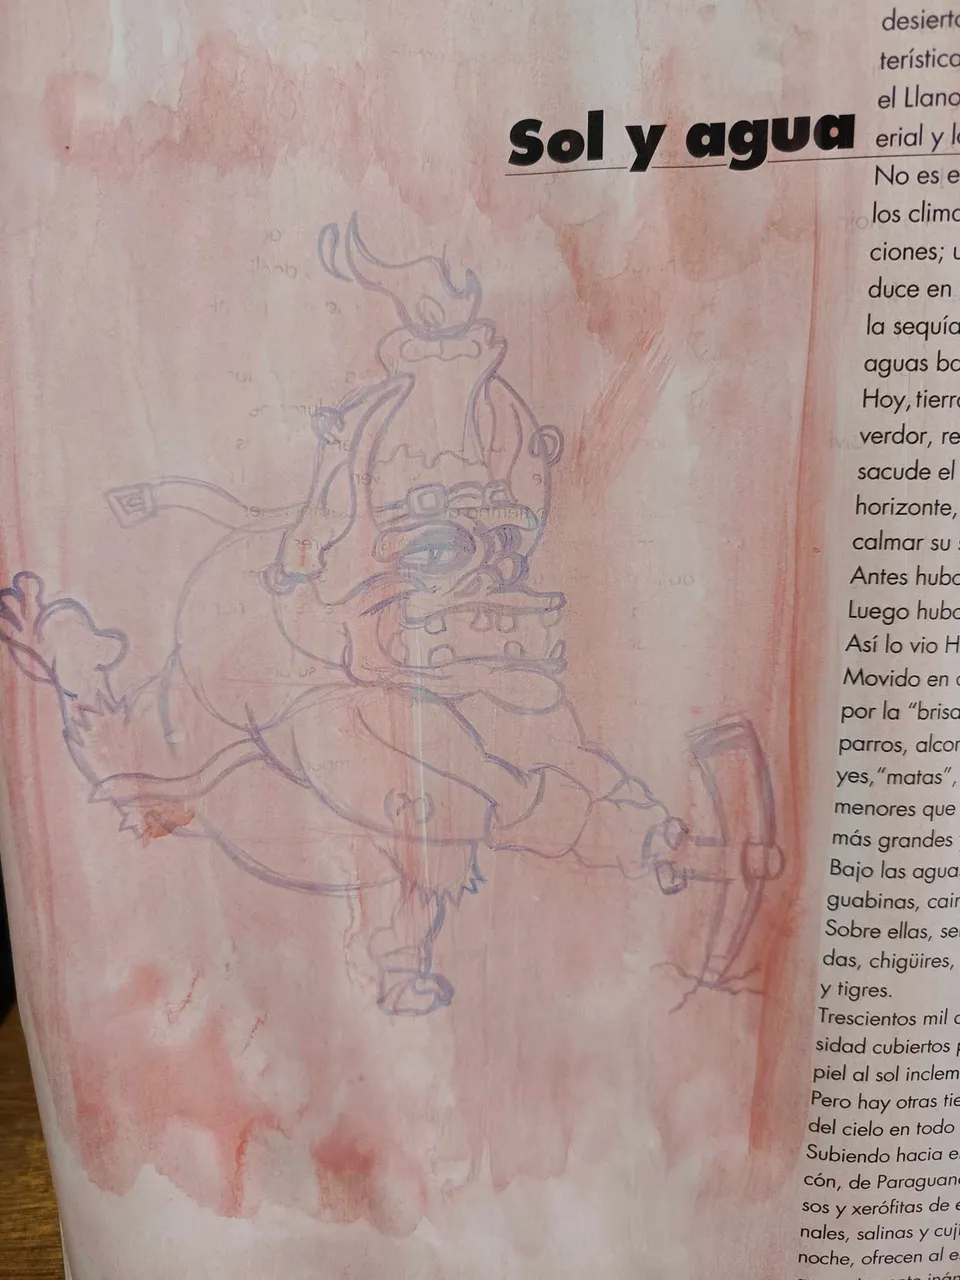 Sol y agua
desierto
terística
el Llano
erial y l
No es e
los clima
ciones; u
duce en
la sequía
aguas ba
Hoy, tierra
verdor, re
sacude el
horizonte,
calmar su s
Antes hubo
Luego hubo
Así lo vio H
Movido en
por la “brisa
parros, alcor
yes, “matas”,
menores que
más grandes y
Bajo las agua
guabinas, cair
Sobre ellas, se
das, chigüires,
y tigres.
Trescientos mil
sidad cubiertos p
piel al sol inclem
Pero hay otras tie
del cielo en todo
Subiendo hacia e
cón, de Paraguan
sos y xerófitas de e
nales, salinas y cuji
noche, ofrecen al e